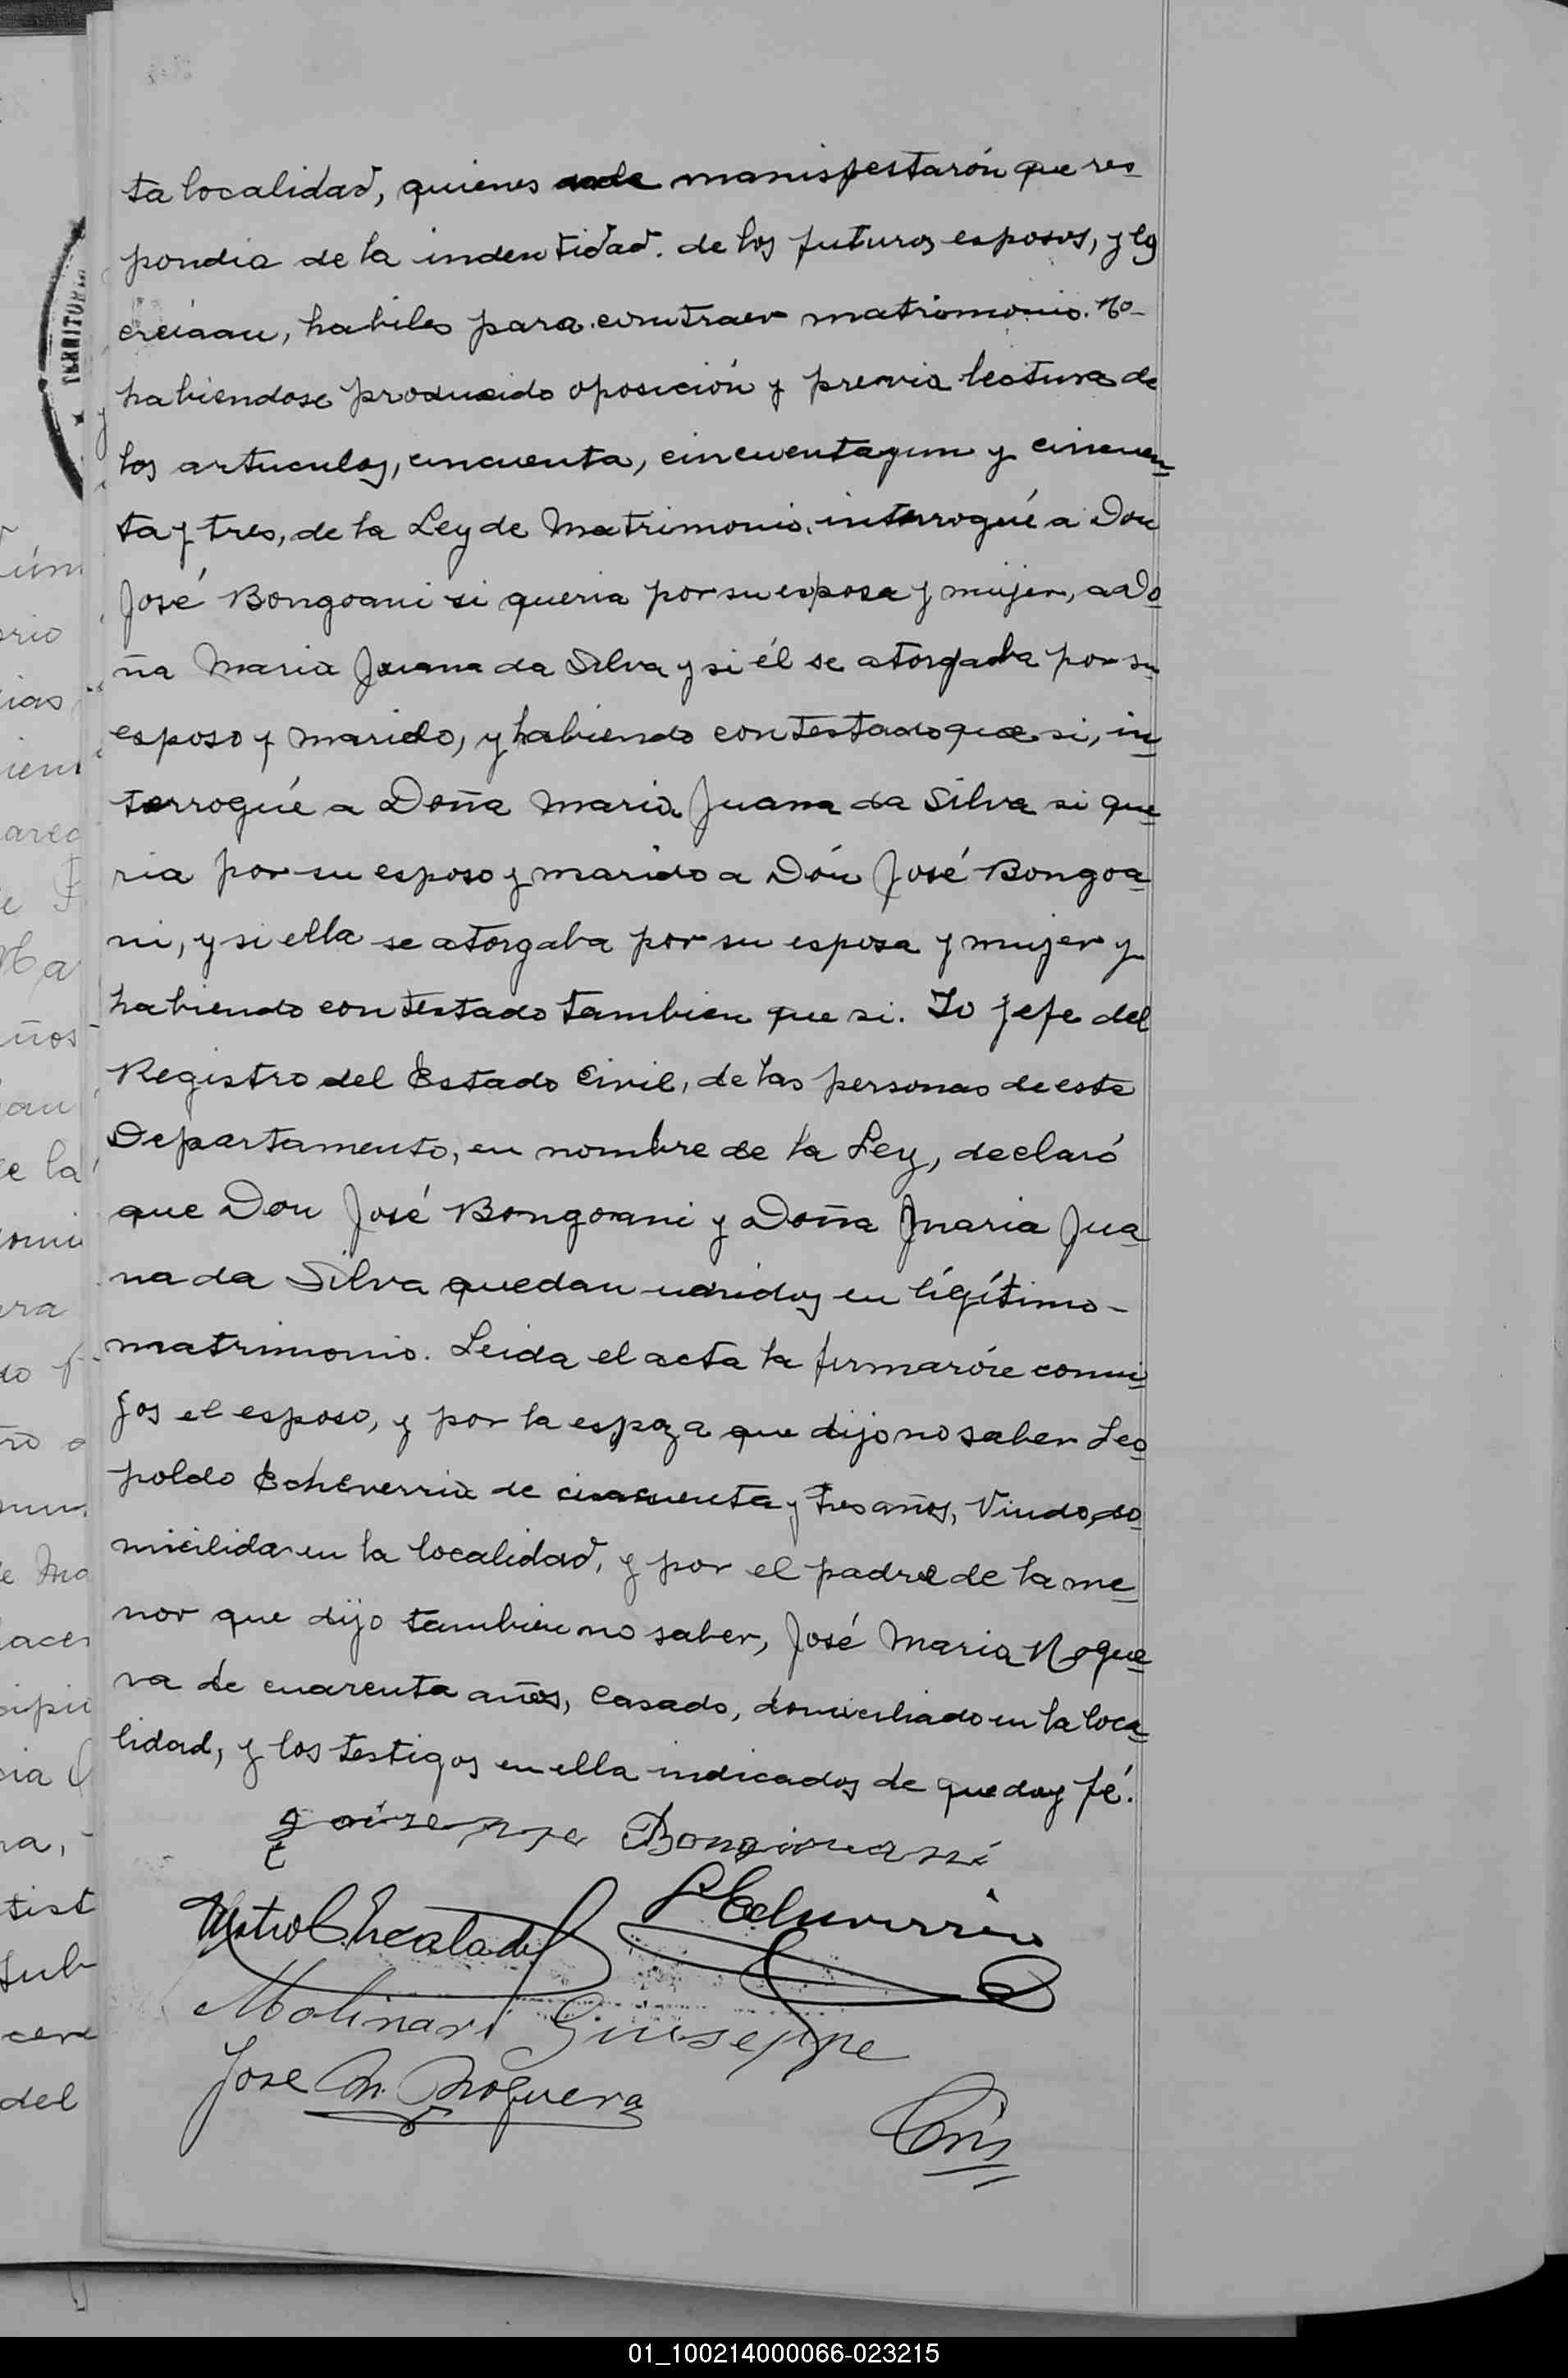 ta localidad, quienes manispestarón que res
pondia de la indentidad. de los futuros esposos, y los
creiaan, habiles para contraer matrimonio. No-
habiendose producido oposición y previa lectura de
los artuculos, cincuenta, cincuentayun y cincuen
ta y tres, de la Ley de Matrimonio, interrogué a Don
José Bongoani si queria por su esposa y mujer, a Do
ña Maria Juana da Silva y si él se atorgaba por su
esposo y marido, y habiendo contestado que si, in
terrogué a Doña Maria Juana da Silva si que
ria por su esposo y marido a Dón José Bongoa
ni, y si ella se atorgaba por su esposa y mujer y
habiendo contestado tambien que si. Yo Jefe del
Registro del Estado Civil, de las personas de este
Departamento, en nombre de la Ley, declaró
que Don José Bongoani y Doña Maria Jua
na da Silva quedan unidos en lígítimo-
matrimonio. Leida el acta la firmarón conmi
gos el esposo, y por la espoza que dijo no saber Leo
poldo Echeverria de cincuenta y tres años, Viudo, do
micilida en la localidad, y por el padre de la me
nor que dijo tambien no saber, José Maria Nogue
ra de cuarenta años, Casado, domiciliado en la loca
lidad, y los testigos en ella indicados de que doy fé.
Bongiovanni
L Echeverria
Molinari Giuseppe
Jose M. Noguera
TERRITORI
01_100214000066-023215